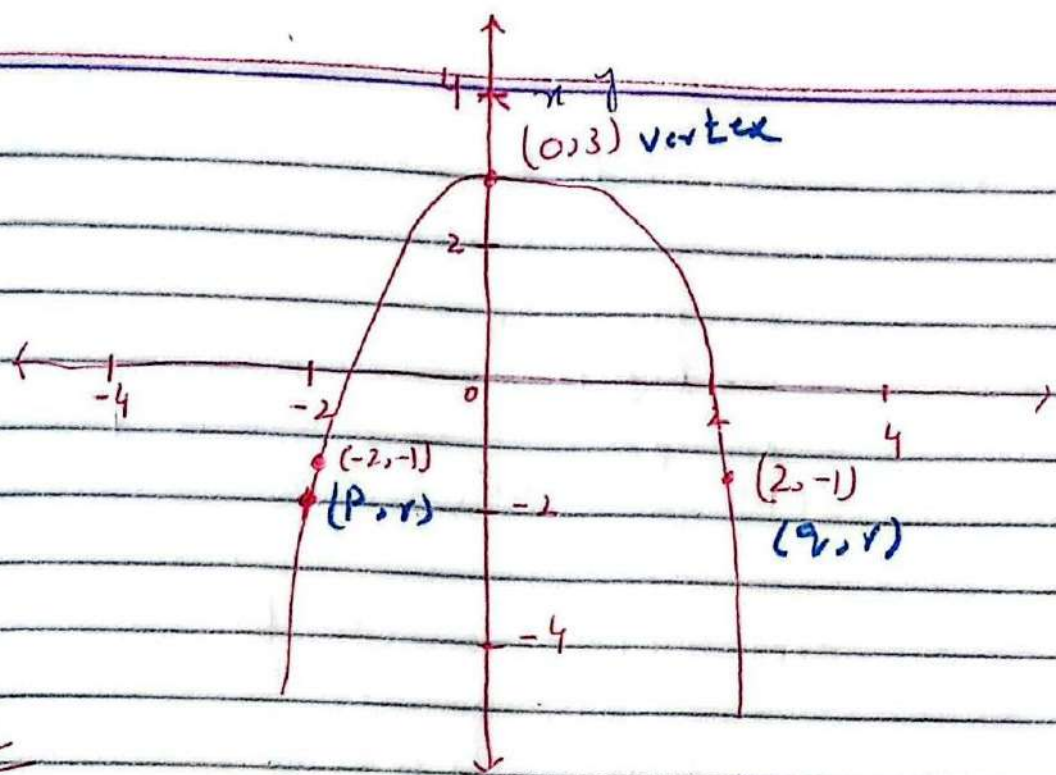 4 x y
(0,3) vertex
2
-4 -2 0 2 4
(-2,-1) (2,-1)
(p,r) -2 (q,r)
-4